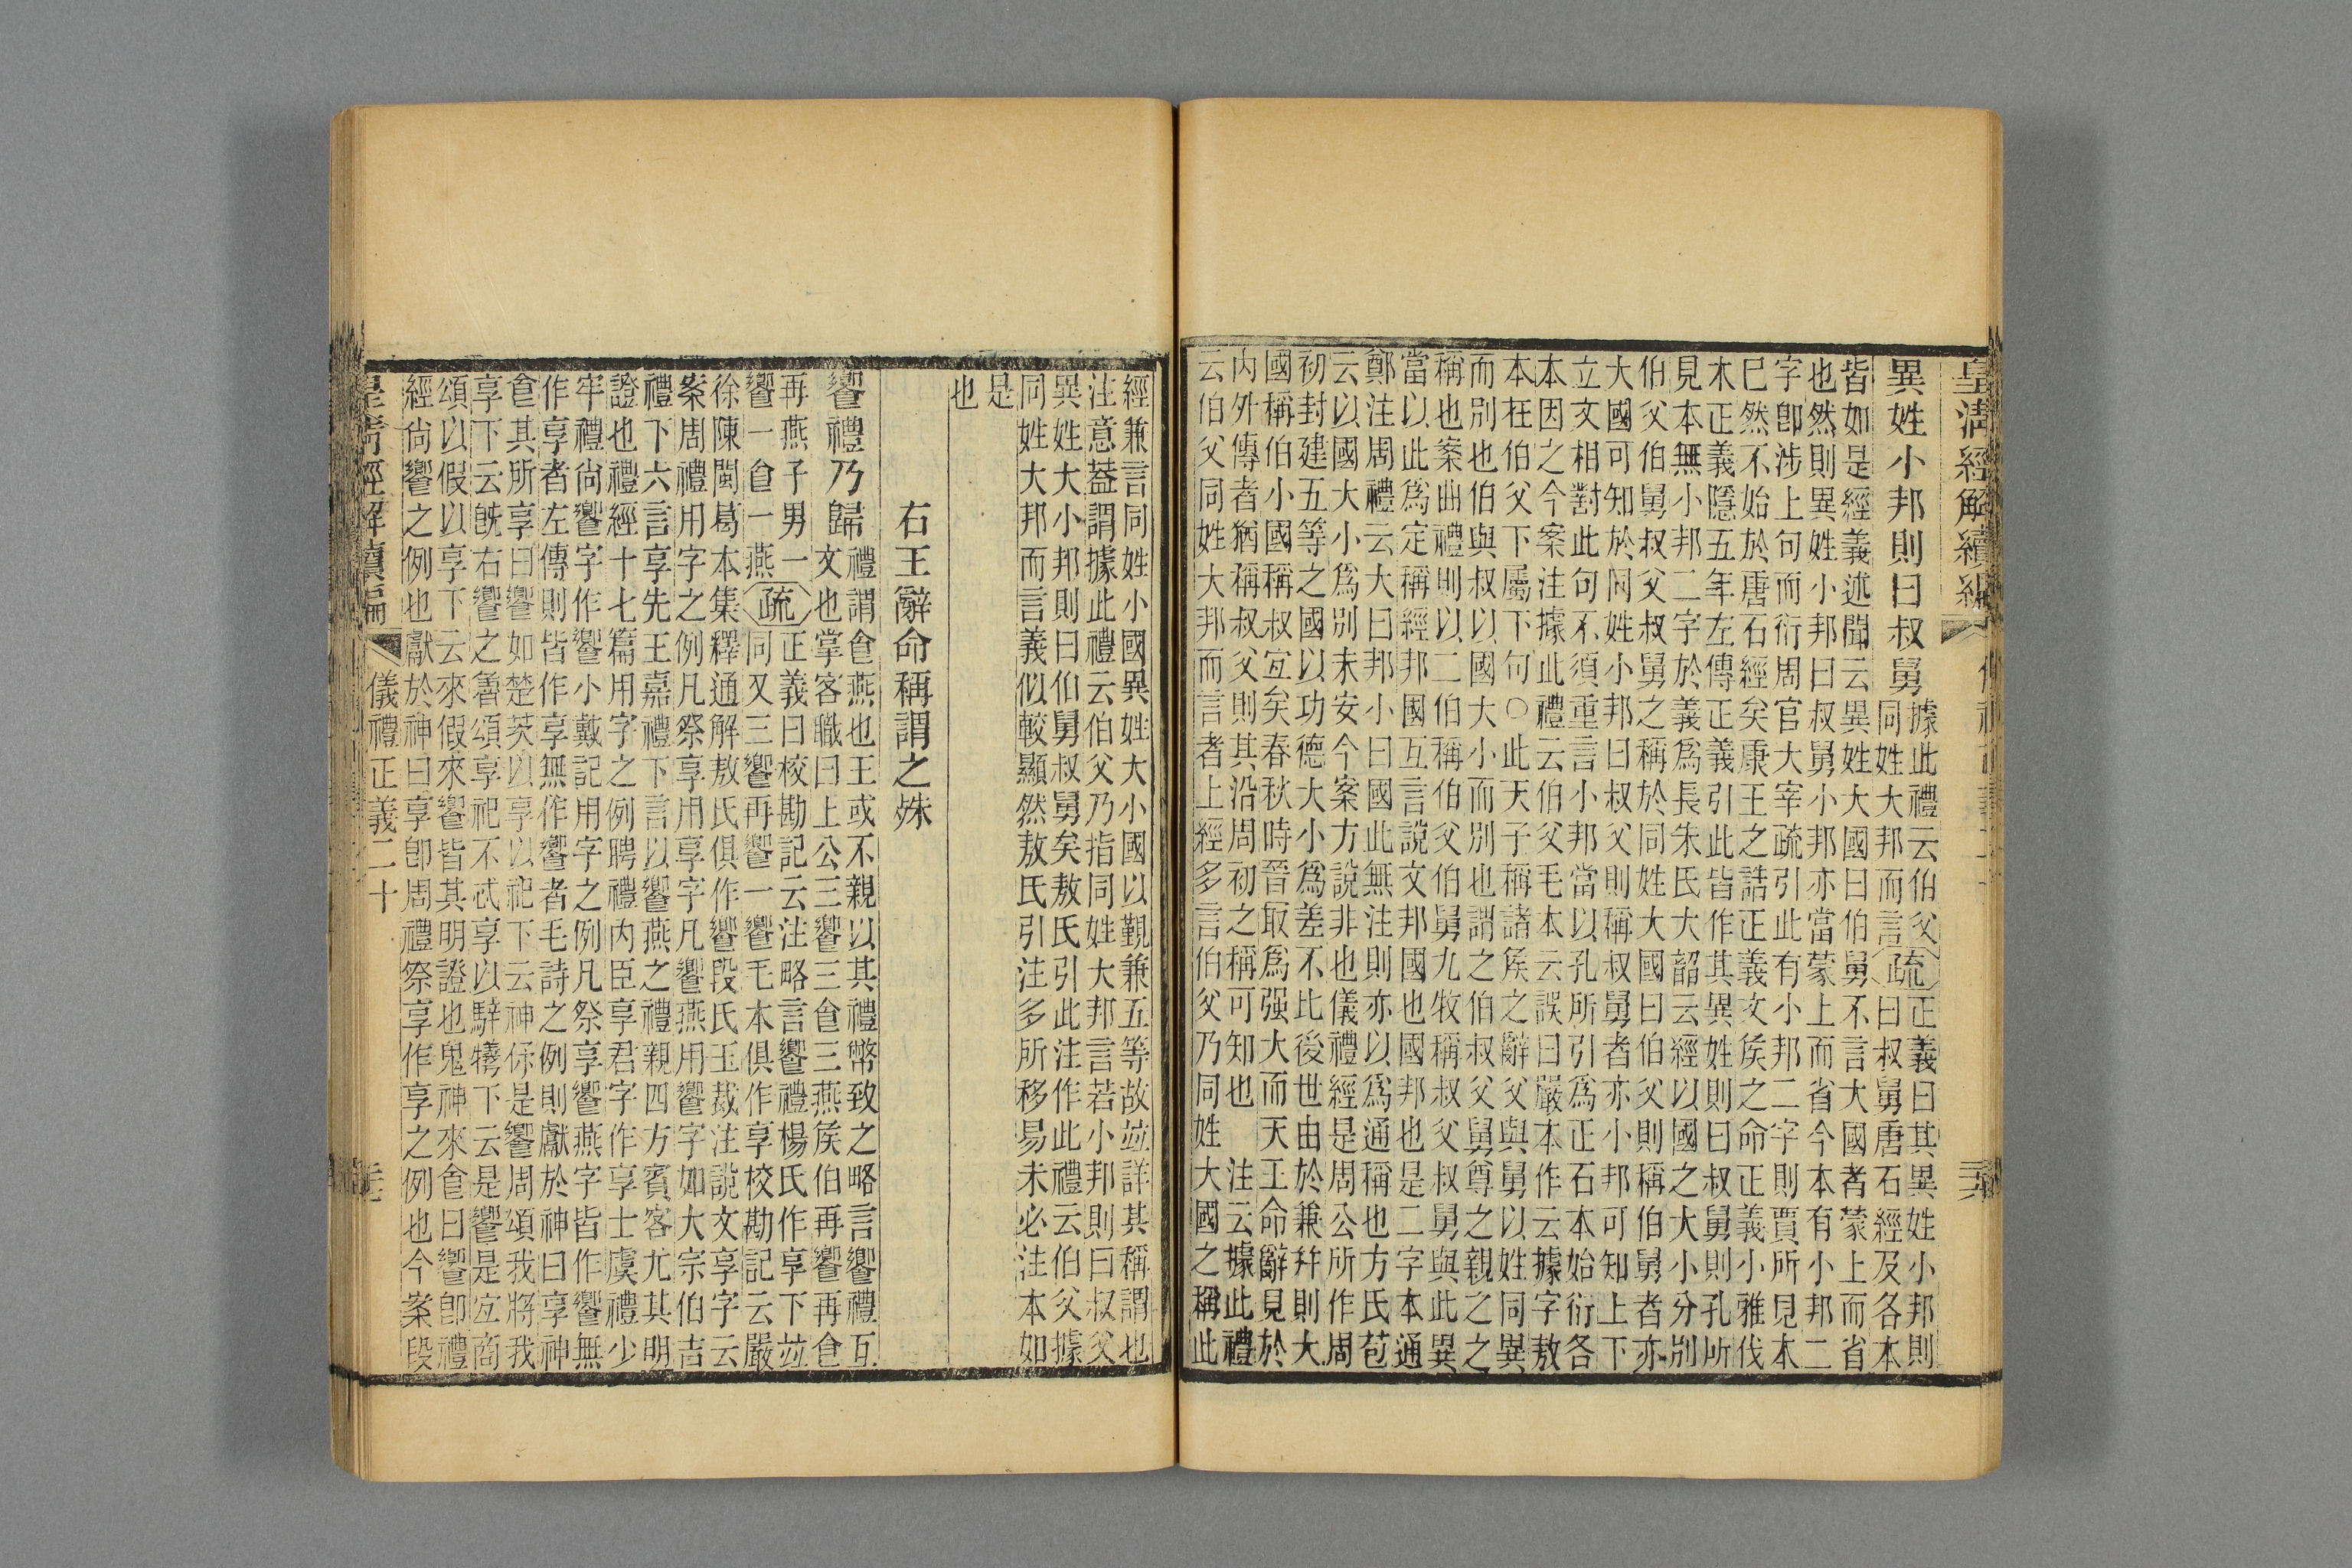 皇淸經解續編
異姓小邦則曰叔舅
據此禮云伯父疏正義曰其異姓小邦則
同姓大邦而言曰叔舅唐石經及各本
皆如是經義述聞云異姓大國曰伯舅不言大國者蒙上而省
也然則異姓小邦曰叔舅小邦亦當蒙上而省今本有小邦二
字卽涉上句而衍周官大宰疏引此有小邦二字則賈所見本
巳然不始於唐石經矣康王之誥正義文矦之命正義小雅伐
木正義隱五年左傳正義引此皆作其異姓則曰叔舅則孔所
見本無小邦二字於義爲長朱氏大韶云經以國之大小分別
伯父伯舅叔父叔舅之稱於同姓大國曰伯父則稱伯舅者亦
大國可知於同姓小邦曰叔父則稱叔舅者亦小邦可知上下
立文相對此句不須重言小邦當以孔所引爲正石本始衍各
本因之今案注據此禮云伯父毛本云誤曰嚴本作云據字敖
本在伯父下屬下句○此天子稱諸矦之辭父與舅以姓同異
而別也伯與叔以國大小而別也謂之伯叔父舅尊之親之之
稱也案曲禮則以二伯稱伯父伯舅九牧稱叔父叔舅與此異
當以此爲定稱經邦國互言說文邦國也國邦也是二字本通
鄭注周禮云大曰邦小曰國此無注則亦以爲通稱也方氏苞
云以國大小爲別未安今案方說非也儀禮經是周公所作周
初封建五等之國以功德大小爲差不比後世由於兼幷則大
國稱伯小國稱叔宐矣春秋時晉最爲强大而天王命辭見於
內外傳者猶稱叔父則其沿周初之稱可知也 注云據此禮
云伯父同姓大邦而言者上經多言伯父乃同姓大國之稱此
經兼言同姓小國異姓大小國以覲兼五等故竝詳其稱謂也
注意葢謂據此禮云伯父乃指同姓大邦言若小邦則曰叔父
異姓大小邦則曰伯舅叔舅矣敖氏引此注作此禮云伯父據
同姓大邦而言義似較顯然敖氏引注多所移易未必注本如
是
也
右王辭命稱謂之殊
饗禮乃歸
禮謂食燕也王或不親以其禮幣致之略言饗禮互
文也掌客職曰上公三饗三食三燕矦伯再饗再食
再燕子男一
饗一食一燕
疏
正義曰校勘記云注略言饗禮楊氏作享下竝
同又三饗再饗一饗毛本俱作享校勘記云嚴
徐陳閩葛本集釋通解敖氏俱作饗段氏玉裁注說文享字云
案周禮用字之例凡祭享用享字凡饗燕用饗字如大宗伯吉
禮下六言享先王嘉禮下言以饗燕之禮親四方賓客尤其明
證也禮經十七篇用字之例聘禮內臣享君字作享士虞禮少
牢禮尙饗字作饗小戴記用字之例凡祭享饗燕字皆作饗無
作享者左傳則皆作享無作饗者毛詩之例則獻於神曰享神
食其所享曰饗如楚茨以享以祀下云神保是饗周頌我將我
享下云旣右饗之魯頌享祀不忒享以騂犧下云是饗是宐商
頌以假以享下云來假來饗皆其明證也鬼神來食曰饗卽禮
經尙饗之例也獻於神曰享卽周禮祭享作享之例也今案段
皇淸經解續編 儀禮正義二十